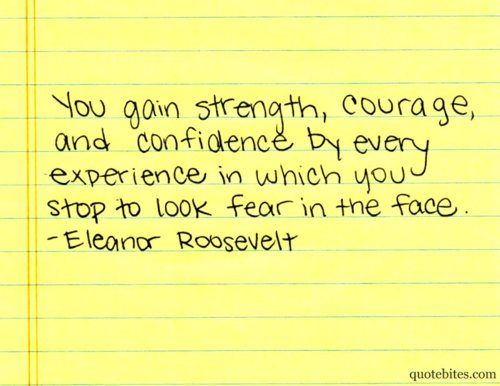 You gain strength, courage,
and confidence by every
experience in which you
stop to look fear in the face.
- Eleanor Roosevelt
quotebites.com